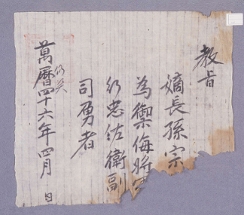 教旨
嫡長孫宗
為禦侮將軍
行忠佐衛副
司勇者
萬曆四十六年四月 日